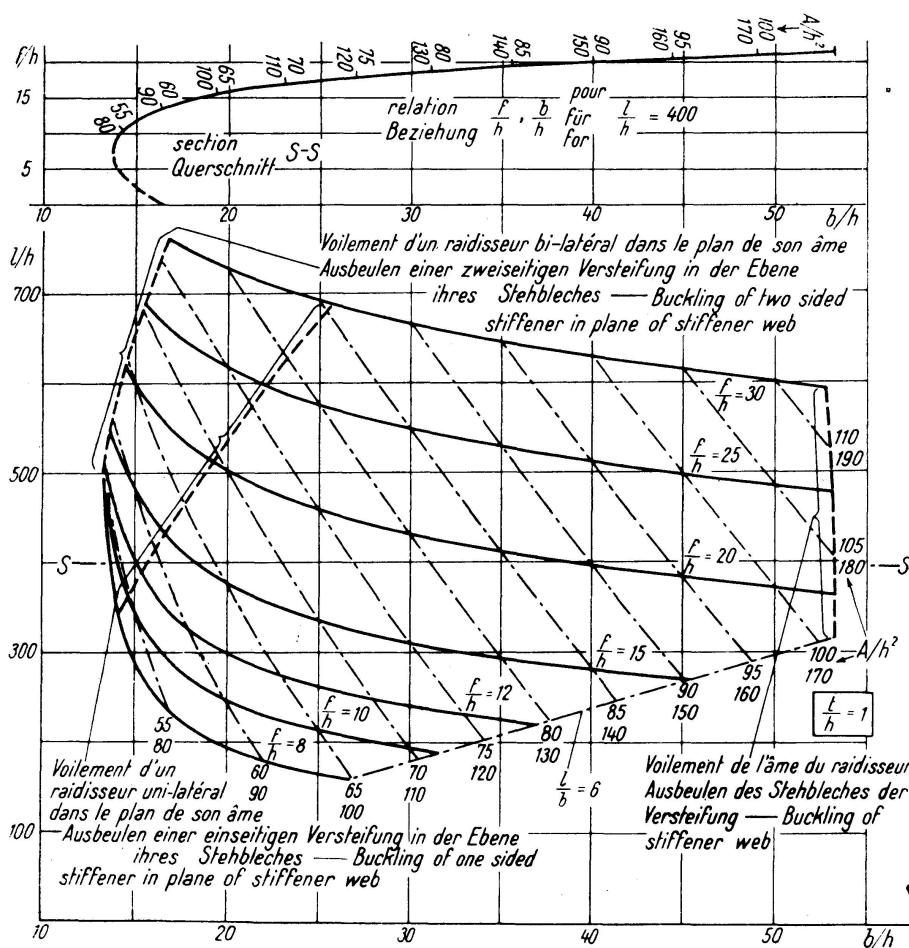 f/h
15
5
10 20 30 40 50 b/h
80 55 90 60 100 65 110 70 120 75 130 80 140 85 150 90 160 95 170 100 A/h²
relation f/h, b/h pour l/h = 400
Beziehung für
for
section S-S
Querschnitt
l/h
700
500
300
100
Voilement d'un raidisseur bi-latéral dans le plan de son âme
Ausbeulen einer zweiseitigen Versteifung in der Ebene
ihres Stehbleches — Buckling of two sided
stiffener in plane of stiffener web
f/h = 30
f/h = 25
f/h = 20
f/h = 15
f/h = 12
f/h = 10
f/h = 8
S S
110
190
105
180
100 A/h²
170
95
160
90
150
85
140
80
130
75
120
70
110
65
100
60
90
55
80
t/h = 1
l/b = 6
Voilement d'un
raidisseur uni-latéral
dans le plan de son âme
Ausbeulen einer einseitigen Versteifung in der Ebene
ihres Stehbleches — Buckling of one sided
stiffener in plane of stiffener web
Voilement de l'âme du raidisseur
Ausbeulen des Stehbleches der
Versteifung — Buckling of
stiffener web
10 20 30 40 50 b/h